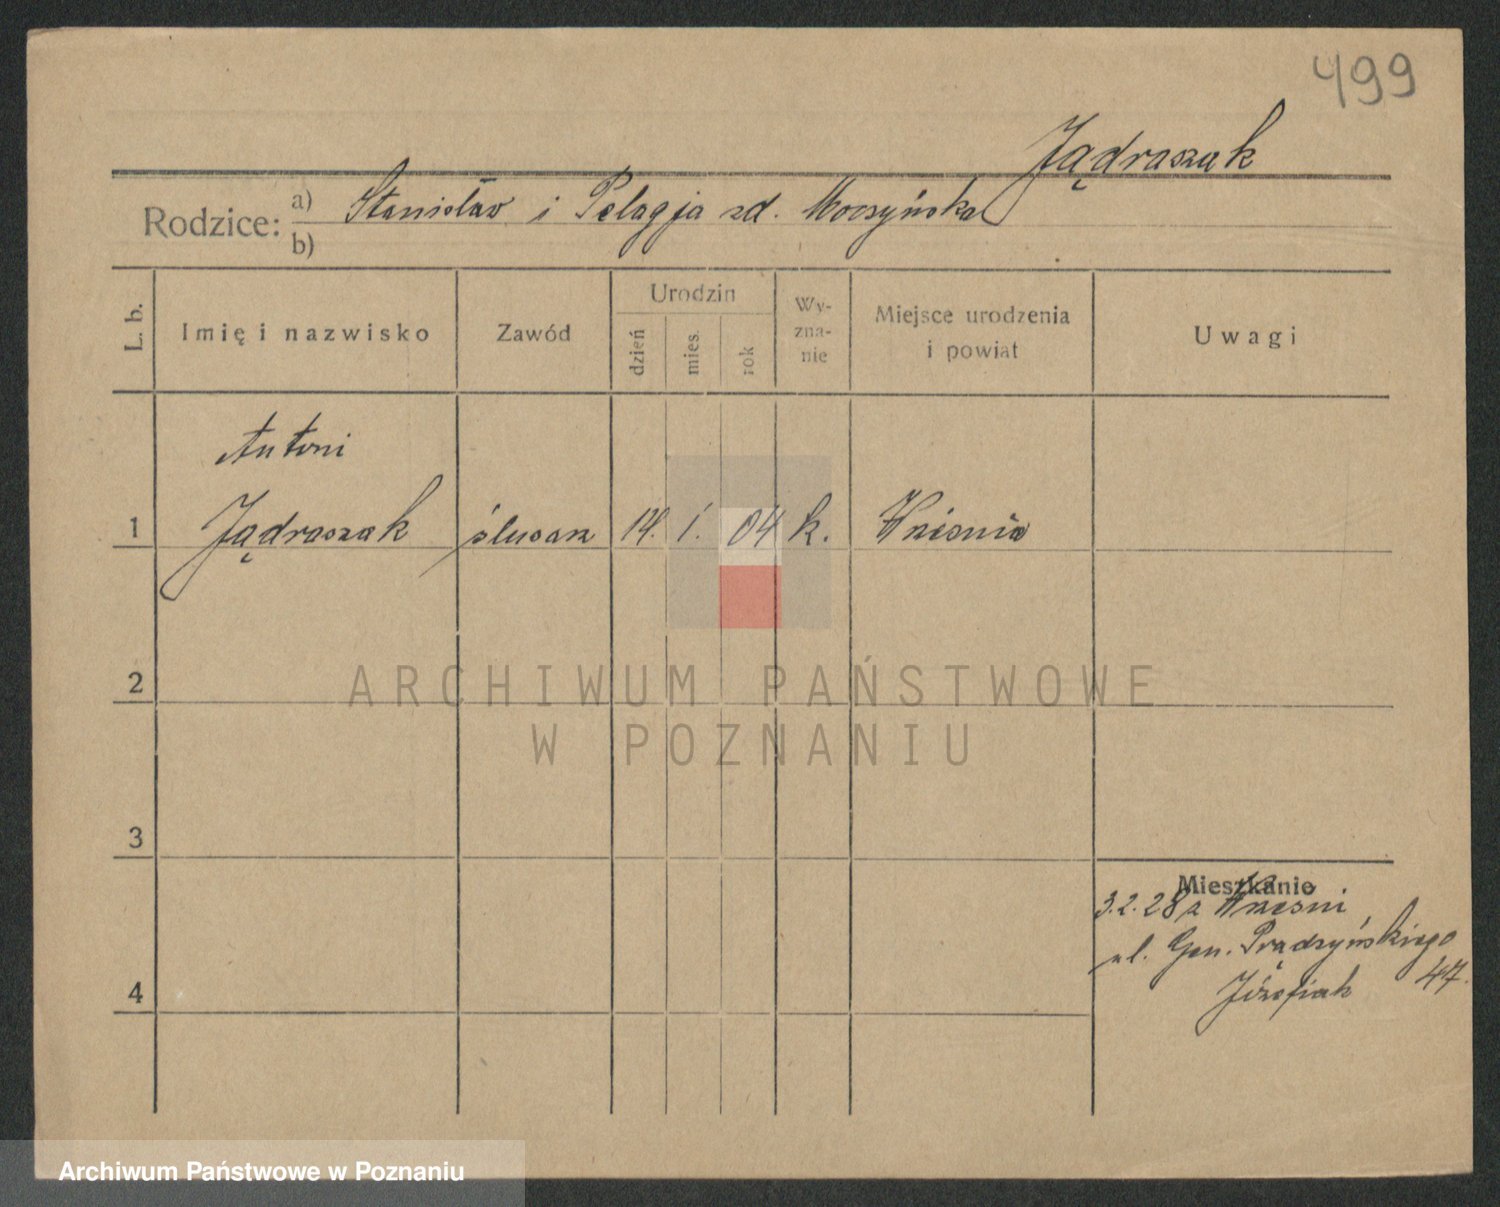 499
Jądraszak
Rodzice: a) Stanisław i Pelagja zd. Moczyńska
b)
L. b.
Imię i nazwisko
Zawód
Urodzin
dzień
mies.
rok
Wy-
zna-
nie
Miejsce urodzenia
i powiat
Uwagi
Antoni
1 Jądraszak ślusarz 14. 1. 04 k. Wrześnio
2
3
4
Mieszkanie
3.2.28 z Wrześni
ul. Gen. Prądzyńskiego
47.
Józefiak
ARCHIWUM PAŃSTWOWE
W POZNANIU
Archiwum Państwowe w Poznaniu